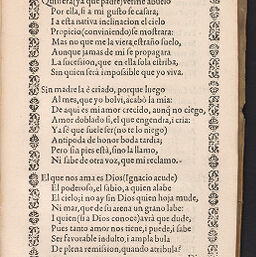 Quisiera (ya que padre) verme abuelo
Por ella, si a mi gusto se casara,
I a esta natiua inclinacion el cielo
Propicio (conviniendo) se mostrara:
Mas no que me la viera, estraño suelo,
Aunque jamas de mi se propagara
La sucession, que en ella sola estriba,
Sin quien será impossible que yo viva.
Sin madre la è criado, porque luego
Al mes, que yo bolvi, acabó la mia:
De aqui es mi amor crecido, aunq̃ no ciego,
Amor doblado si, el que engendra, i cria:
Ya sé que suele ser (no te lo niego)
Antipoda de honor boda tardia;
Pero sin pies está, sino la llamo,
Ni sabe de otra voz, que mi reclamo.
El que nos ama es Dios (Ignacio acude)
El poderoso, el sabio, a quien alabe
El cielo; i no ay sin Dios quien hoja mude,
Ni mar, que de su arena un grano labe:
I quien (si a Dios conoce) avrá que dude,
Pues tanto amor nos tiene, i puede, i sabe
Ser favorable indulto, i ampla bula
De plena remission, quando atribula?